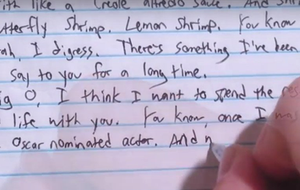 with like a Creole alfredo sauce. And
tterfly Shrimp. Lemon Shrimp. You know
ah, I digress. There's something I've been
say to you for a long time.
ig O, I think I want to spend the
life with you. You know, once I
Oscar nominated actor. And n